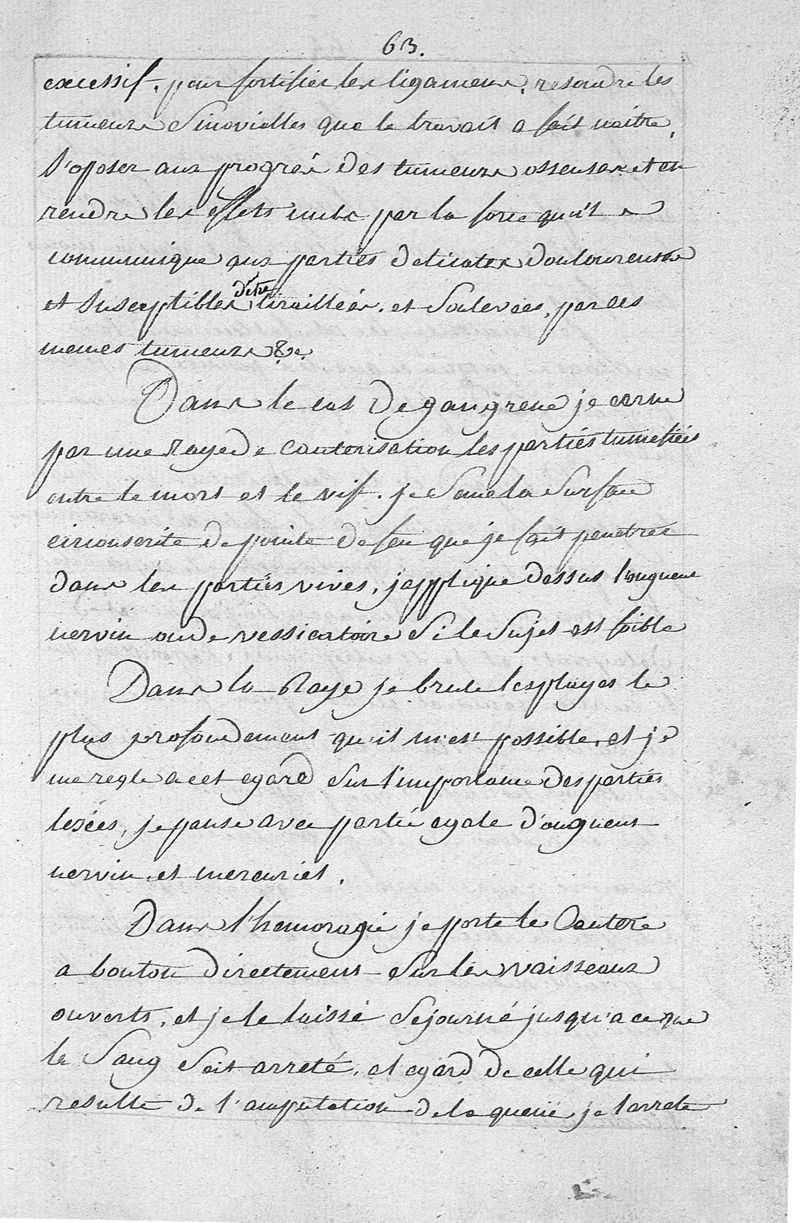 63.
excessif. pour fortifier les ligamens, resoudre les
tumeurs Sinovialles que le travail a fait naitre,
S'oposer aux progrés des tumeurs osseuses et en
rendre les effets nuls par la force qu'il
communique aux parties delicates douloureuses
et Susceptibles d'être tiraillées, et Soulevées, par ces
memes tumeurs &c.
Dans le cas De gangrene je cerne
par une raye de cauterisation les parties tumefiées
entre le mort et le vif. je Seme la Surface
circonscrite de pointe de feu que je fait penetrer
dans les parties vives, j'applique dessus l'onguent
nervin ou de vessicatoire Si le Sujet est foible
Dans la Rage je brule les playes le
plus profondement qu'il m'est possible, et je
me regle a cet egard Sur l'importance des parties
lezées, je panse avec partie egale d'onguent
nervin et mercuriel.
Dans l'hemoragie je porte le Cautere
a bouton directement Sur les vaisseaux
ouverts, et je le laisse Sejourné jusqu'a ce que
le Sang Soit arreté, et egard de celle qui
resulte de l'amputation de la queue je l'arrete